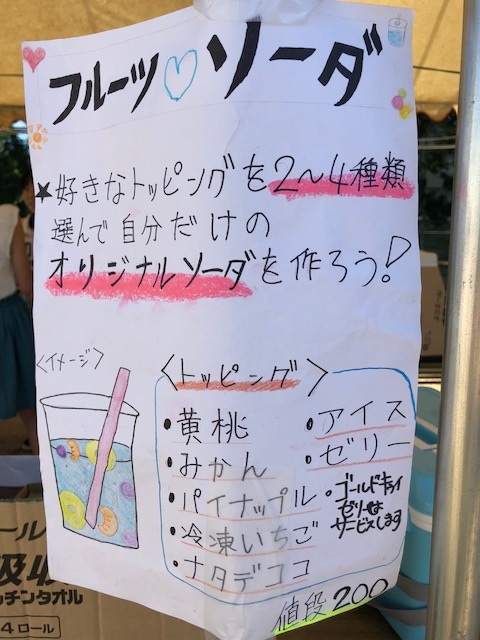 フルーツ♡ソーダ
★好きなトッピングを2〜4種類
選んで自分だけの
オリジナルソーダを作ろう!
〈イメージ〉
〈トッピング〉
・黄桃
・みかん
・パイナップル
・冷凍いちご
・ナタデココ
・アイス
・ゼリー
・ゴールドキウイ
ゼリーは
サービスします
値段 200
ール
吸収
ッチンタオル
4ロール